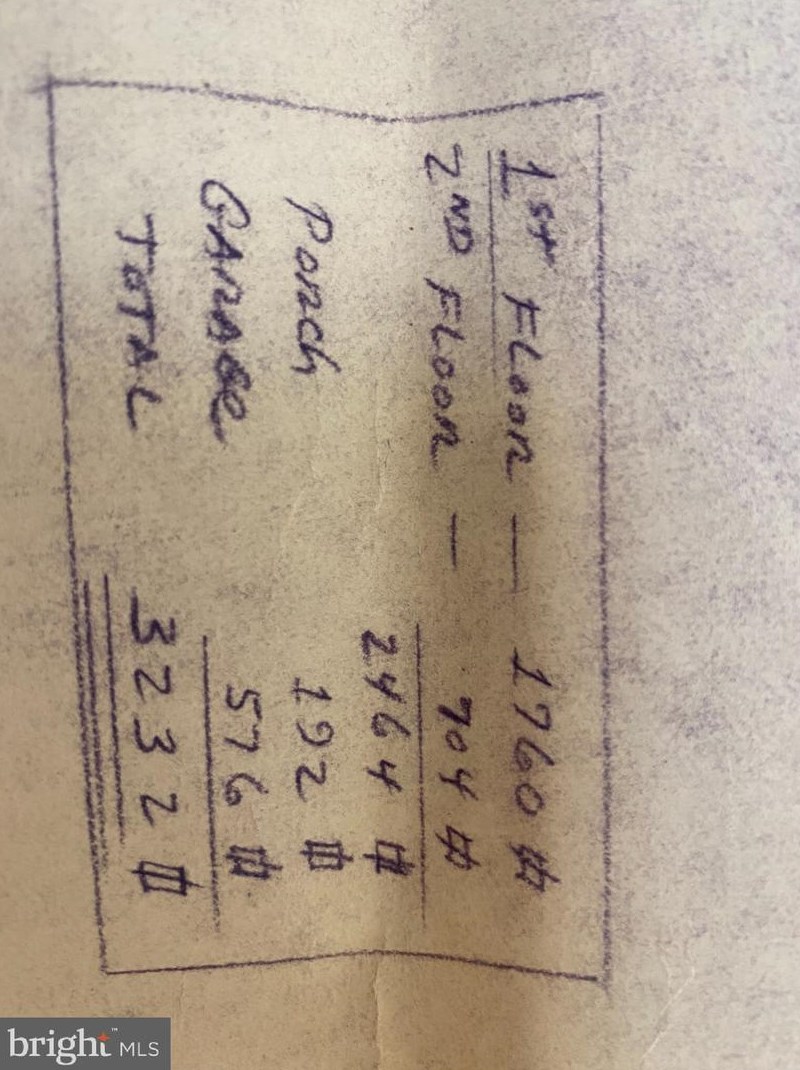 1ST FLOOR — 1760 #
2ND FLOOR — 704 #
2464 #
Porch 192 #
GARAGE 576 #
TOTAL 3232 #
bright™ MLS